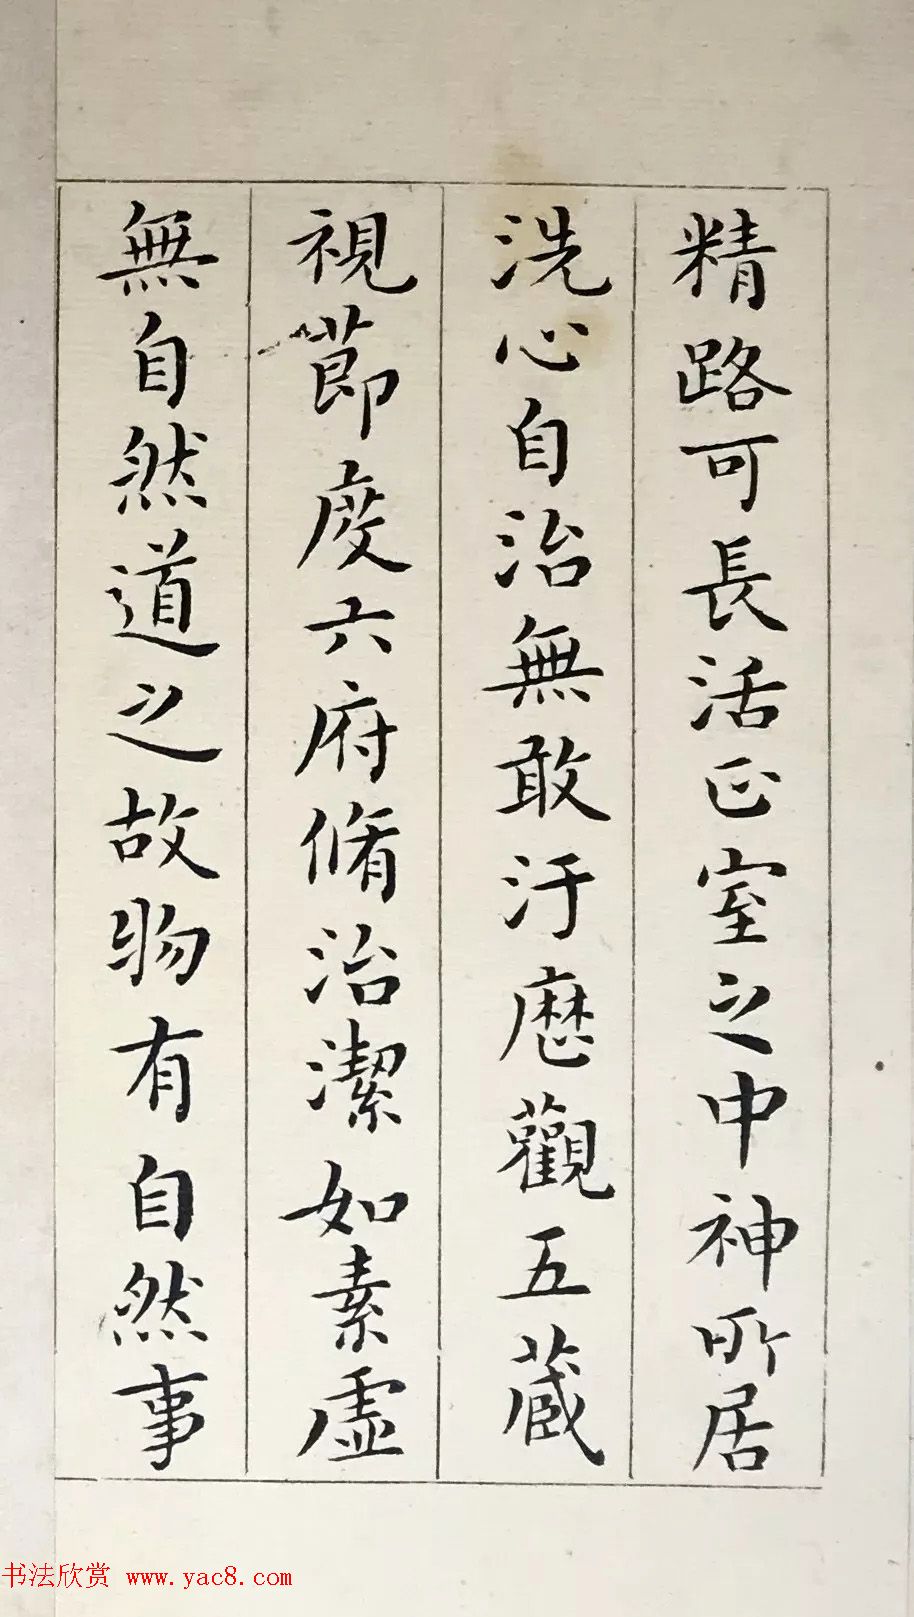 精路可長活正室之中神所居
洗心自治無敢汙歷觀五藏
視節度六府脩治潔如素虛
無自然道之故物有自然事
书法欣赏 www.yac8.com